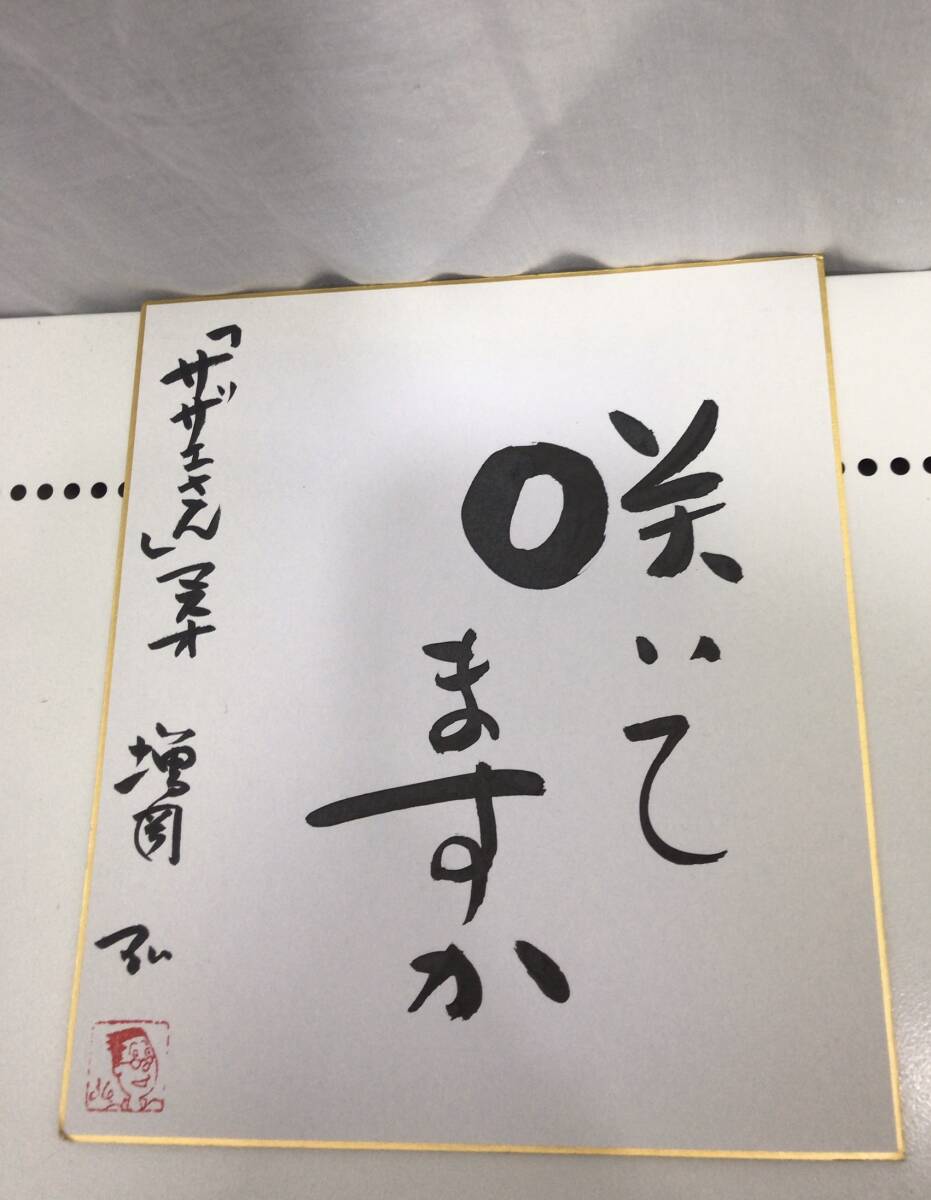 咲いて
ますか
「サザエさん」マスオ
増岡 弘